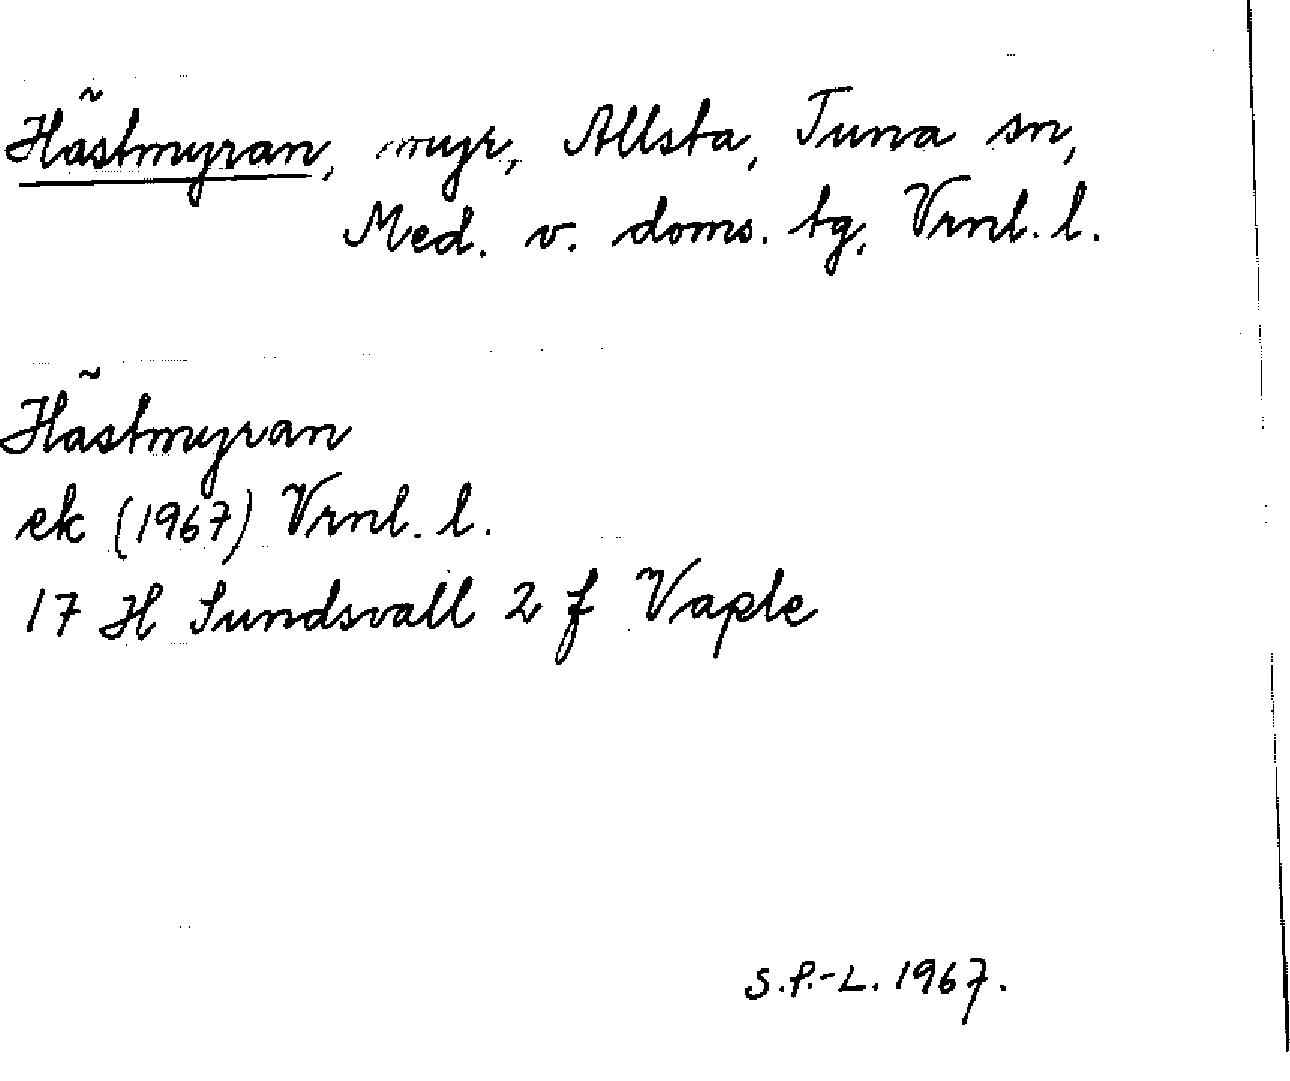 Hästmyran, myr, Allsta, Tuna sn,
Med. v. doms. tg, Vrnl. l.
Hästmyran
ek (1967) Vrnl. l.
17 H Sundsvall 2 f Vaple
S.P.-L. 1967.